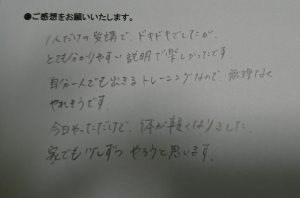 ●ご感想をお願いいたします。
1人だけの受講で、ドキドキでしたが、
とても分かりやすい説明で楽しかったです。
自分一人でも出来るトレーニングなので、無理なく
やれそうです。
今日やっただけで、体が軽くなりました。
家でも少しずつ やろうと思います。